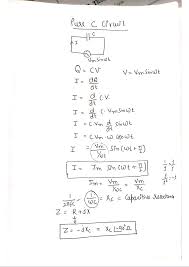 Pure C Circuit
C
I
Vm sinωt
Q = CV    V = Vm sinωt
I = dQ/dt
I = d/dt CV
I = d/dt C·Vm sinωt
I = C Vm d/dt sinωt
I = C Vm · ω cosωt
I = Vm/(1/ωC) sin(ωt + π/2)
I = Im sin(ωt + π/2)
Im = Vm/(1/ωC) = Vm/Xc
1/2πfC = 1/ωC = Xc = Capacitive reactance
Z = R + jX
Z = -jXc = Xc ∠-90° Ω